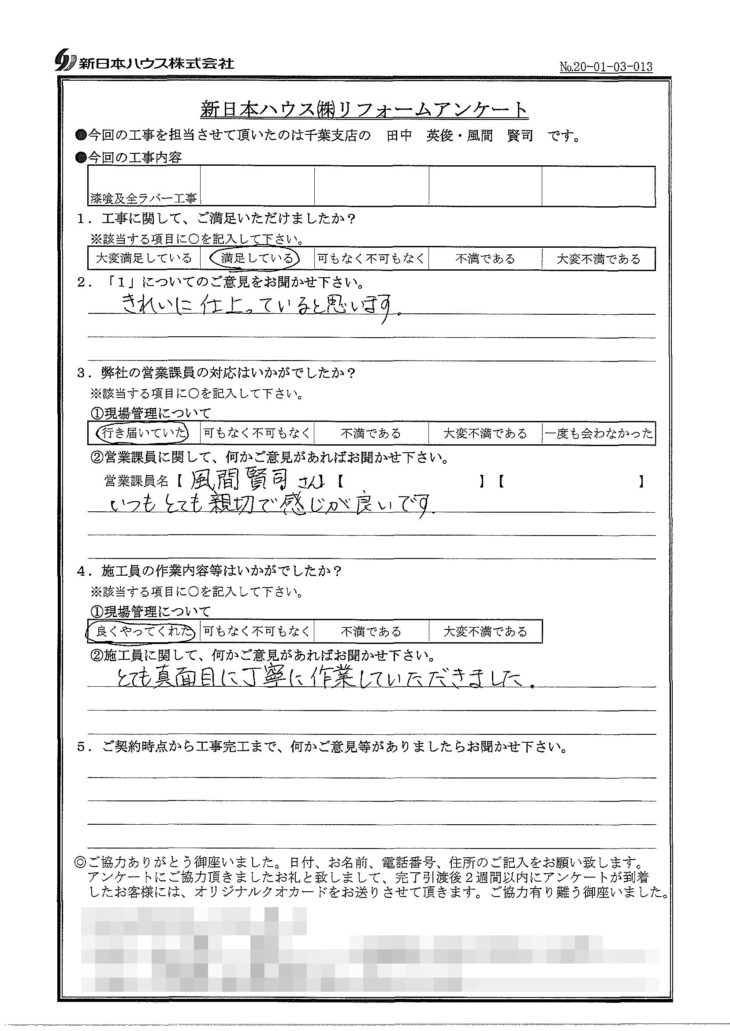 新日本ハウス株式会社
№20-01-03-013
新日本ハウス㈱リフォームアンケート
●今回の工事を担当させて頂いたのは千葉支店の 田中 英俊・風間 賢司 です。
●今回の工事内容
漆喰及全ラバー工事
1．工事に関して、ご満足いただけましたか？
※該当する項目に○を記入して下さい。
大変満足している 満足している 可もなく不可もなく 不満である 大変不満である
2．「1」についてのご意見をお聞かせ下さい。
きれいに仕上っていると思います.
3．弊社の営業課員の対応はいかがでしたか？
※該当する項目に○を記入して下さい。
①現場管理について
行き届いていた 可もなく不可もなく 不満である 大変不満である 一度も会わなかった
②営業課員に関して、何かご意見があればお聞かせ下さい。
営業課員名【 風間賢司さん】【 】【 】
いつもとても親切で感じが良いです.
4．施工員の作業内容等はいかがでしたか？
※該当する項目に○を記入して下さい。
①現場管理について
良くやってくれた 可もなく不可もなく 不満である 大変不満である
②施工員に関して、何かご意見があればお聞かせ下さい。
とても真面目に丁寧に作業していただきました.
5．ご契約時点から工事完工まで、何かご意見等がありましたらお聞かせ下さい。
◎ご協力ありがとう御座いました。日付、お名前、電話番号、住所のご記入をお願い致します。
アンケートにご協力頂きましたお礼と致しまして、完了引渡後２週間以内にアンケートが到着
したお客様には、オリジナルクオカードをお送りさせて頂きます。ご協力有り難う御座いました。